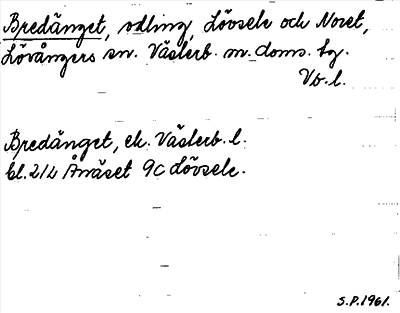 Bredänget, odling, Lövsele och Noret,
Lövångers sn. Västerb. m. doms. tg.
Vb. l.
Bredänget, ek. Västerb. l.
bl. 214 Ånäset 9c Lövsele.
S.P. 1961.